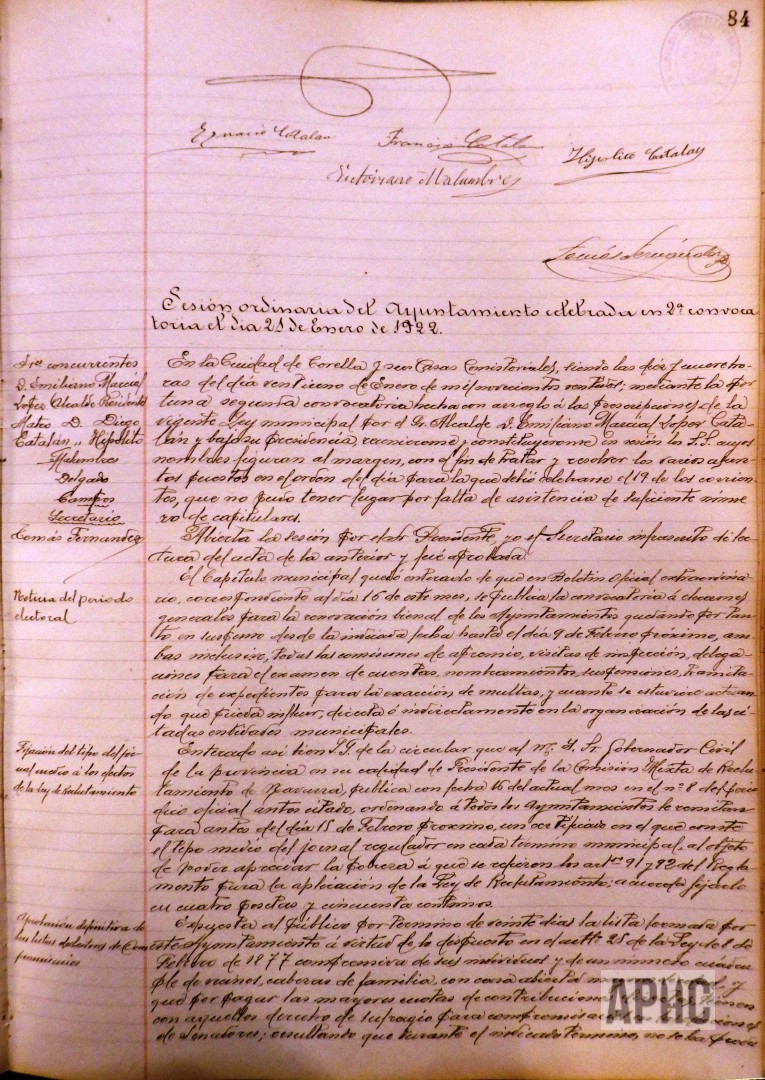 84
Ignacio Catalan
Francisco Catalan
Hipolito Catalan
Victoriano Malumbres
Tomás Fernandez
Sesión ordinaria del Ayuntamiento celebrada en 2ª convoca
toria el dia 21 de Enero de 1922.
Sres concurrentes
D. Emiliano Marcial
Lopez Alcalde Presidente
Mateo D. Diego
Catalán " Hipólito
Malumbres
Delgado
Campos
Secretario
Tomás Fernandez
En la Ciudad de Corella y sus Casas Consistoriales, siendo las diez y nueve ho
ras del día veintiuno de Enero de mil novecientos veintidos; mediante la opor
tuna segunda convocatoria hecha con arreglo á las prescripciones de la
vigente Ley municipal por el Sr. Alcalde D. Emiliano Marcial Lopez Cata
lán y bajo su presidencia, reunieronse y constituyeronse en sesión los S.S. cuyos
nombres figuran al margen, con el fin de tratar y resolver los varios asun
tos puestos en el orden del día para la que debió celebrarse el 19 de los corrien
tes, que no pudo tener lugar por falta de asistencia de suficiente núme
ro de capitulares.
Abierta la sesión por el Sr. Presidente, yo el Secretario infrascrito dí lec
tura del acta de la anterior y fué aprobada.
Noticia del periodo
electoral
El Capítulo municipal quedó enterado de que en Boletin Oficial extraordina
rio, correspondiente al día 16 de este mes, se publica la convocatoria á elecciones
generales para la renovación bienal de los Ayuntamientos quedando por tan
to en suspenso desde la indicada fecha hasta el día 9 de Febrero próximo, am
bas inclusive, todas las comisiones de apremio, visitas de inspección, delega
ciones para el examen de cuentas, nombramientos, suspensiones, tramita
ción de expedientes para la exacción de multas, y cuanto se estuviere actuan
do que pueda influir, directa ó indirectamente en la organización de las ci
tadas entidades municipales.
Fijación del tipo del jor
nal medio á los efectos
de la Ley de Reclutamiento
Enterado asi bien S.S. de la circular que el M. I. Sr. Gobernador Civil
de la provincia en su calidad de Presidente de la Comisión Mixta de Reclu
tamiento de Navarra, publica con fecha 16 del actual mes en el nº 8 del perió
dico oficial antes citado, ordenando á todos los Ayuntamientos le remitan
para antes del día 15 de Febrero próximo, un certificado en el que conste
el tipo medio del jornal regulador en cada termino municipal, al objeto
de poder apreciar la pobreza á que se refieren los artos 91 y 92 del Regla
mento para la aplicación de la Ley de Reclutamiento; acuerda fijarlo
en cuatro pesetas y cincuenta centimos.
Aprobación definitiva de
las listas electores de Com
promisarios
Expuesta al público por término de veinte días la lista formada por
este Ayuntamiento á virtud de lo dispuesto en el artº 25 de la Ley del 8 de
Febrero de 1877 comprensiva de sus individuos y de un número cuádru
ple de vecinos, cabezas de familia, con casa abierta
que por pagar las mayores cuotas de contribuciones
con aquellos derecho de sufragio para compromisarios
de Senadores; resultando que durante el indicado termino, no se ha produ
APHC